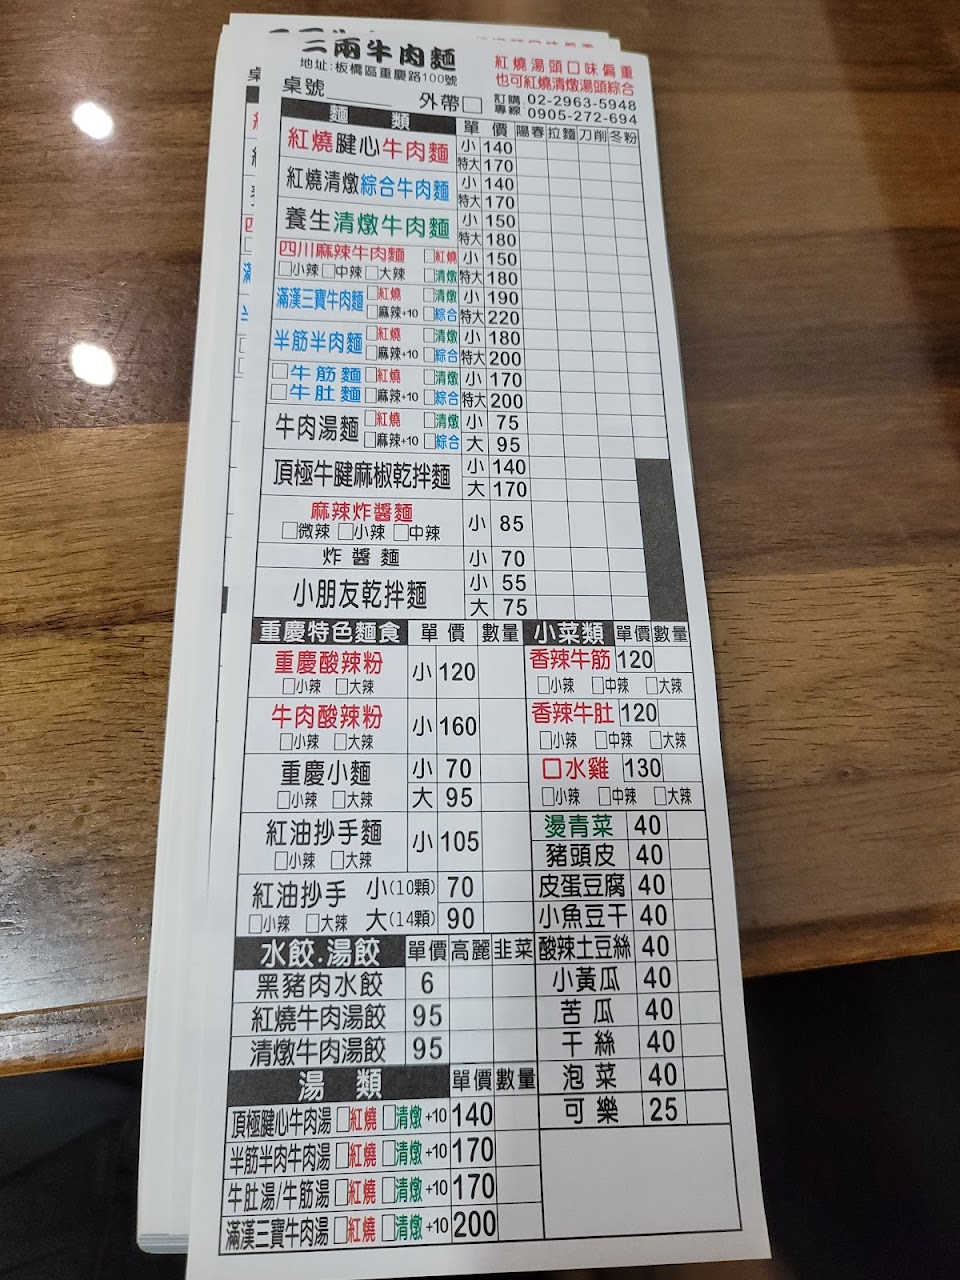 三兩牛肉麵
地址:板橋區重慶路100號
紅燒湯頭口味偏重
也可紅燒清燉湯頭綜合
桌號 外帶□
訂購專線: 02-2963-5948
0905-272-694
麵類 單價 陽春 拉麵 刀削 冬粉
紅燒腱心牛肉麵 小 140
特大 170
紅燒清燉綜合牛肉麵 小 140
特大 170
養生清燉牛肉麵 小 150
特大 180
四川麻辣牛肉麵 □紅燒 小 150
□小辣 □中辣 □大辣 □清燉 特大 180
滿漢三寶牛肉麵 □紅燒 □清燉 小 190
□麻辣+10 □綜合 特大 220
半筋半肉麵 □紅燒 □清燉 小 180
□麻辣+10 □綜合 特大 200
□牛筋麵 □紅燒 □清燉 小 170
□牛肚麵 □麻辣+10 □綜合 特大 200
牛肉湯麵 □紅燒 □清燉 小 75
□麻辣+10 □綜合 大 95
頂極牛腱麻椒乾拌麵 小 140
大 170
麻辣炸醬麵 小 85
□微辣 □小辣 □中辣
炸醬麵 小 70
小朋友乾拌麵 小 55
大 75
重慶特色麵食 單價 數量
重慶酸辣粉 小 120
□小辣 □大辣
牛肉酸辣粉 小 160
□小辣 □大辣
重慶小麵 小 70
□小辣 □大辣 大 95
紅油抄手麵 小 105
□小辣 □大辣
紅油抄手 小(10顆) 70
□小辣 □大辣 大(14顆) 90
水餃.湯餃 單價 高麗 韭菜
黑豬肉水餃 6
紅燒牛肉湯餃 95
清燉牛肉湯餃 95
湯類 單價 數量
頂極腱心牛肉湯 □紅燒 □清燉 +10 140
半筋半肉牛肉湯 □紅燒 □清燉 +10 170
牛肚湯/牛筋湯 □紅燒 □清燉 +10 170
滿漢三寶牛肉湯 □紅燒 □清燉 +10 200
小菜類 單價 數量
香辣牛筋 120
□小辣 □中辣 □大辣
香辣牛肚 120
□小辣 □中辣 □大辣
口水雞 130
□小辣 □中辣 □大辣
燙青菜 40
豬頭皮 40
皮蛋豆腐 40
小魚豆干 40
酸辣土豆絲 40
小黃瓜 40
苦瓜 40
干絲 40
泡菜 40
可樂 25